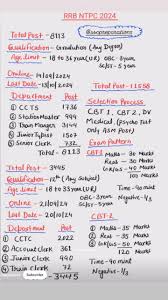 RRB NTPC 2024
Total Post - 8113
Qualification - Graduation (Any Degree)
Age limit - 18 to 36 year (UR) OBC-3year
SC/ST-5 year
Online - 14/09/2024
Last Date - 13/10/2024
Department Post
① CCTS 1736
② Station Master 994
③ Train Manager 3144
④ Junior Typist 1507
⑤ Senior Clerk 732
8113
Total Post - 11558
Selection Process
CBT 1, CBT 2, DV
Medical (Psycho Test
Only ASM Post)
Exam Pattern
CBT1
Maths - 30 Marks
Reas - 30 Marks
GK/GS - 40 Marks
100 Marks
Time - 90 mint
Negative - 1/3
Total Post - 3445
Qualification - 12th (Any Stream)
Age limit - 18 to 33 year (UR) OBC-3year
SC/ST-5year
Online - 21/09/24
Last Date - 20/10/24
Department Post
① CCTC 2022
② Account Clerk 361
③ Junior Clerk 990
④ Train Clerk 72
3445
CBT-2
Maths - 35 Marks
Reas - 35 Marks
GK/GS - 50 Marks
120 Marks
Time - 90 mint
Negative - 1/3